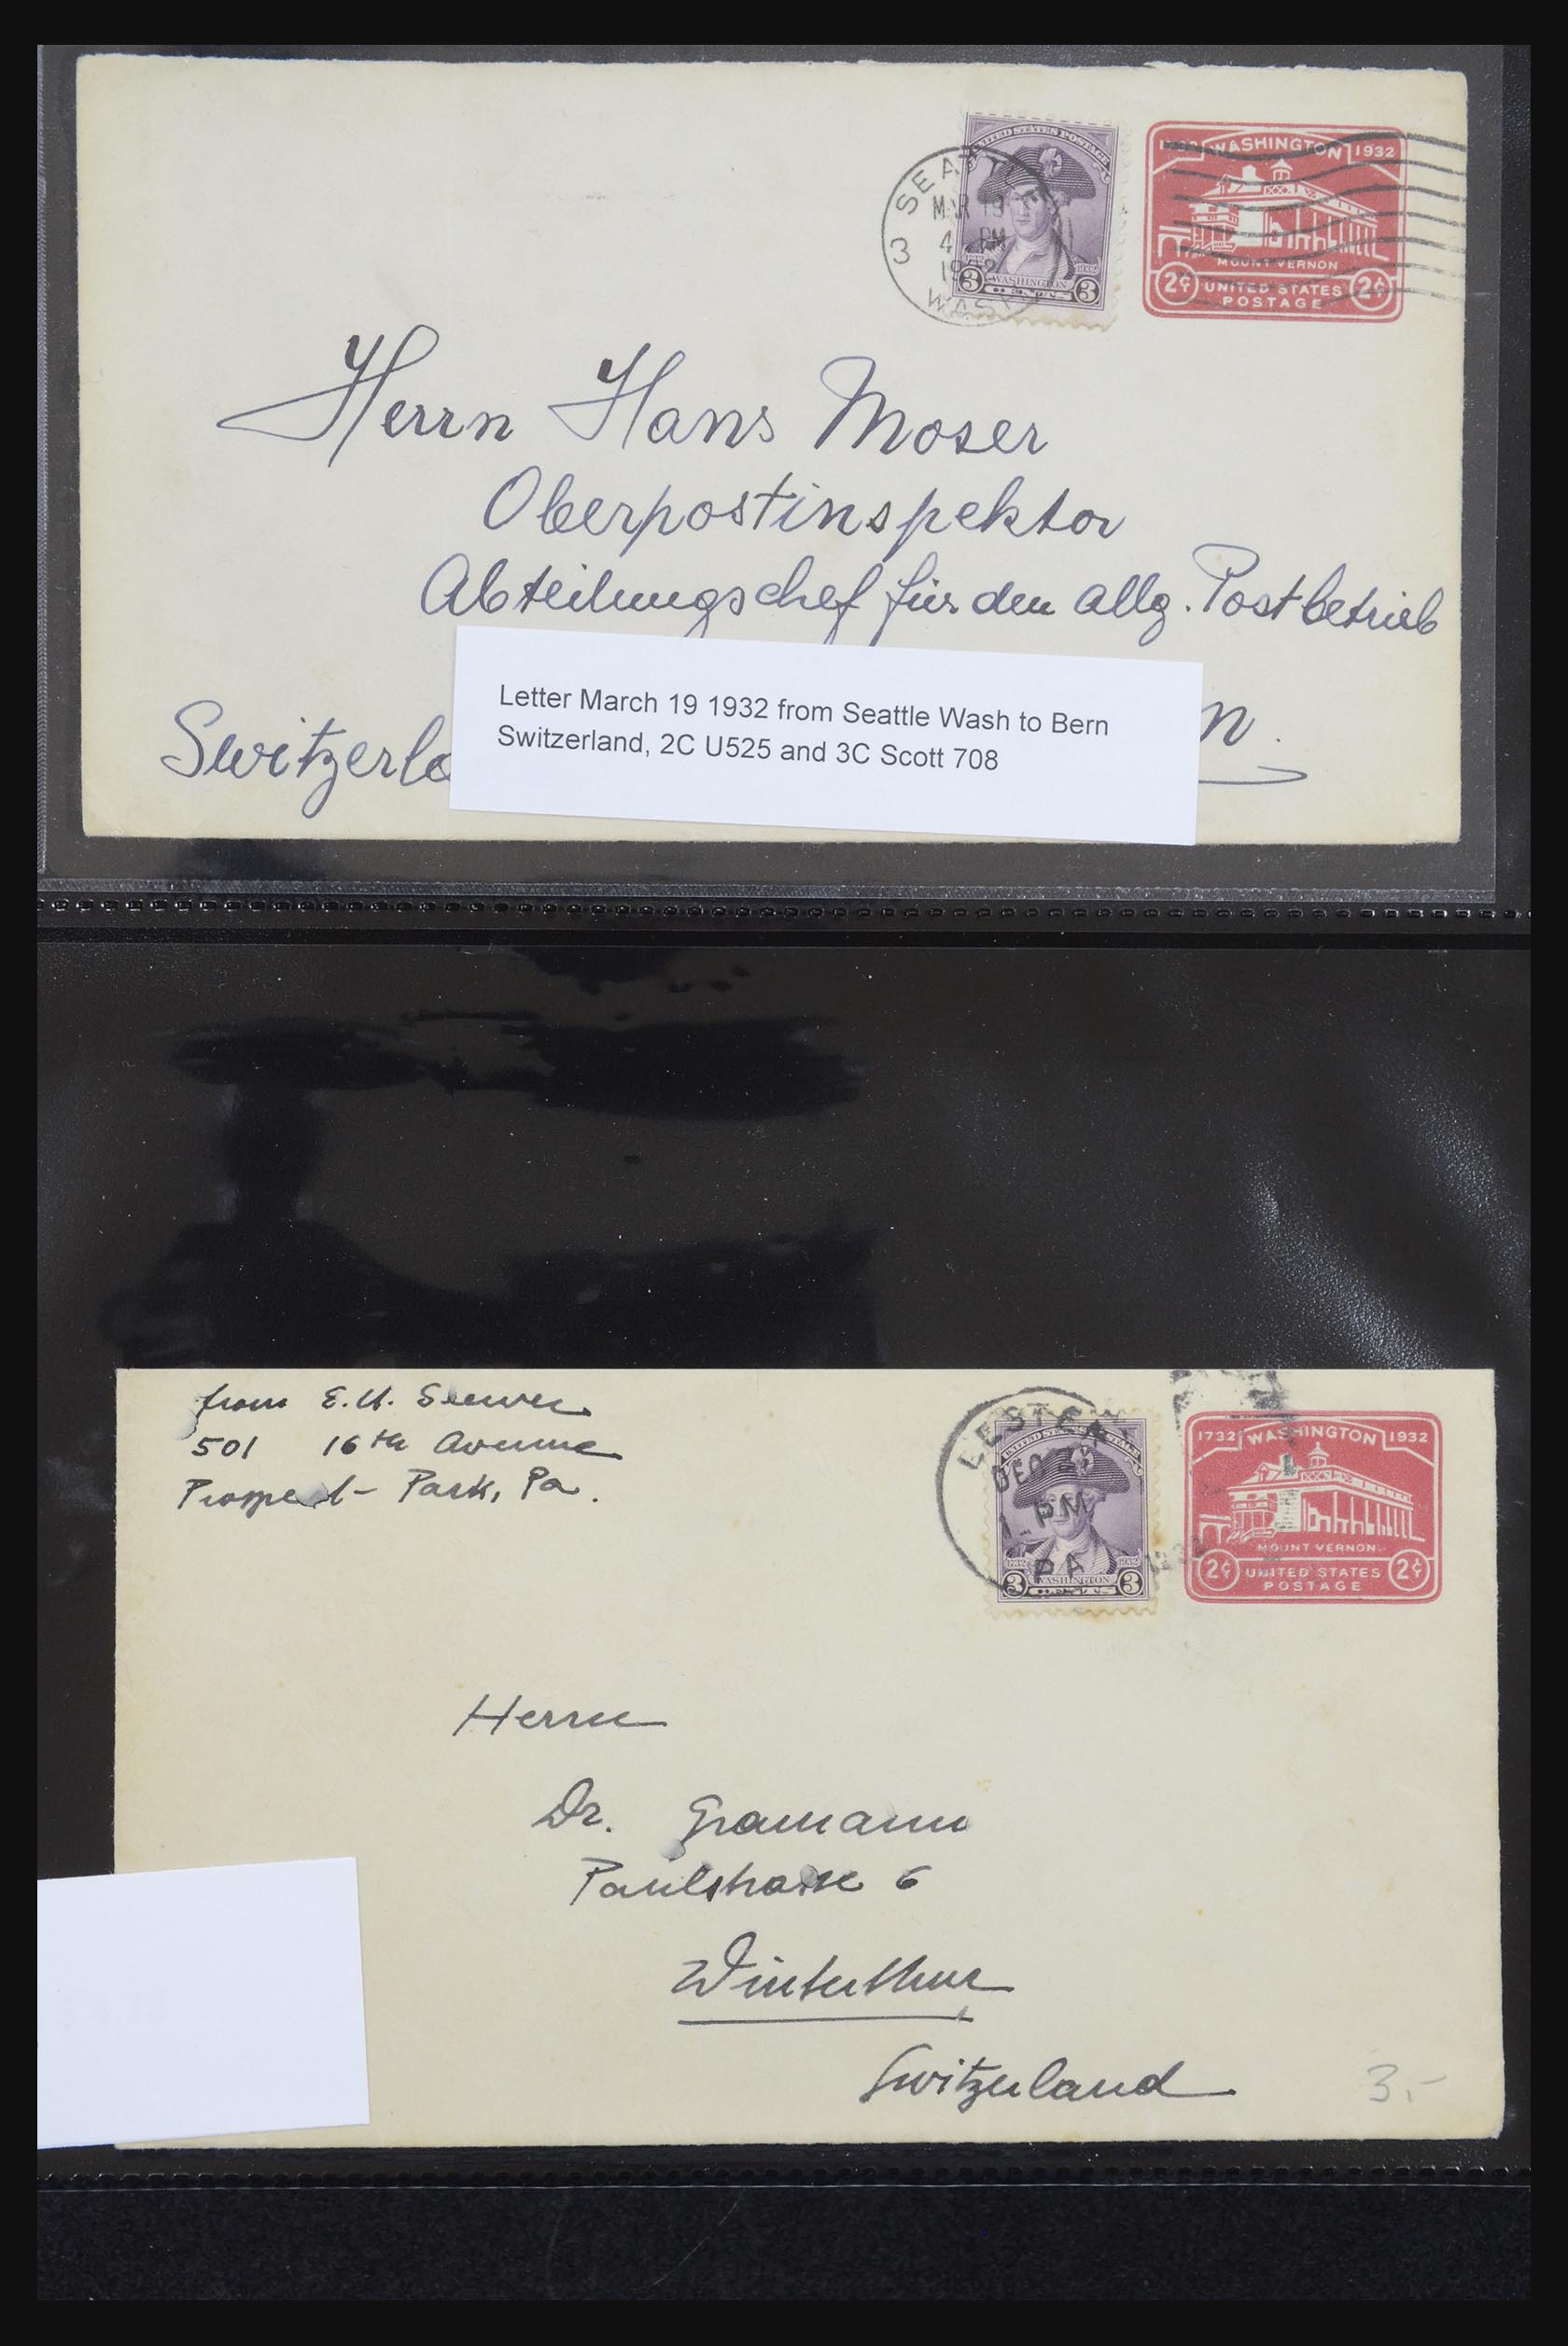 UNITED STATES POSTAGE
WASHINGTON
3 CENTS 3
SEATTLE
MAR 19
4 PM
1932
WASH
3
WASHINGTON 1932
MOUNT VERNON
2¢ UNITED STATES 2¢
POSTAGE
Herrn Hans Moser
Oberpostinspektor
Abteilungschef für den allg. Postbetrieb
Switzerla
n.
Letter March 19 1932 from Seattle Wash to Bern
Switzerland, 2C U525 and 3C Scott 708
from E. U.
501 16th Avenue
Prospect-Park, Pa.
LESTER
DEC
1-PM
PA
1732 1932
3 WASHINGTON 3
1732 WASHINGTON 1932
MOUNT VERNON
2¢ UNITED STATES 2¢
POSTAGE
Herrn
Dr. Gramann
Paulstrasse 6
Winterthur
Switzerland
3.-